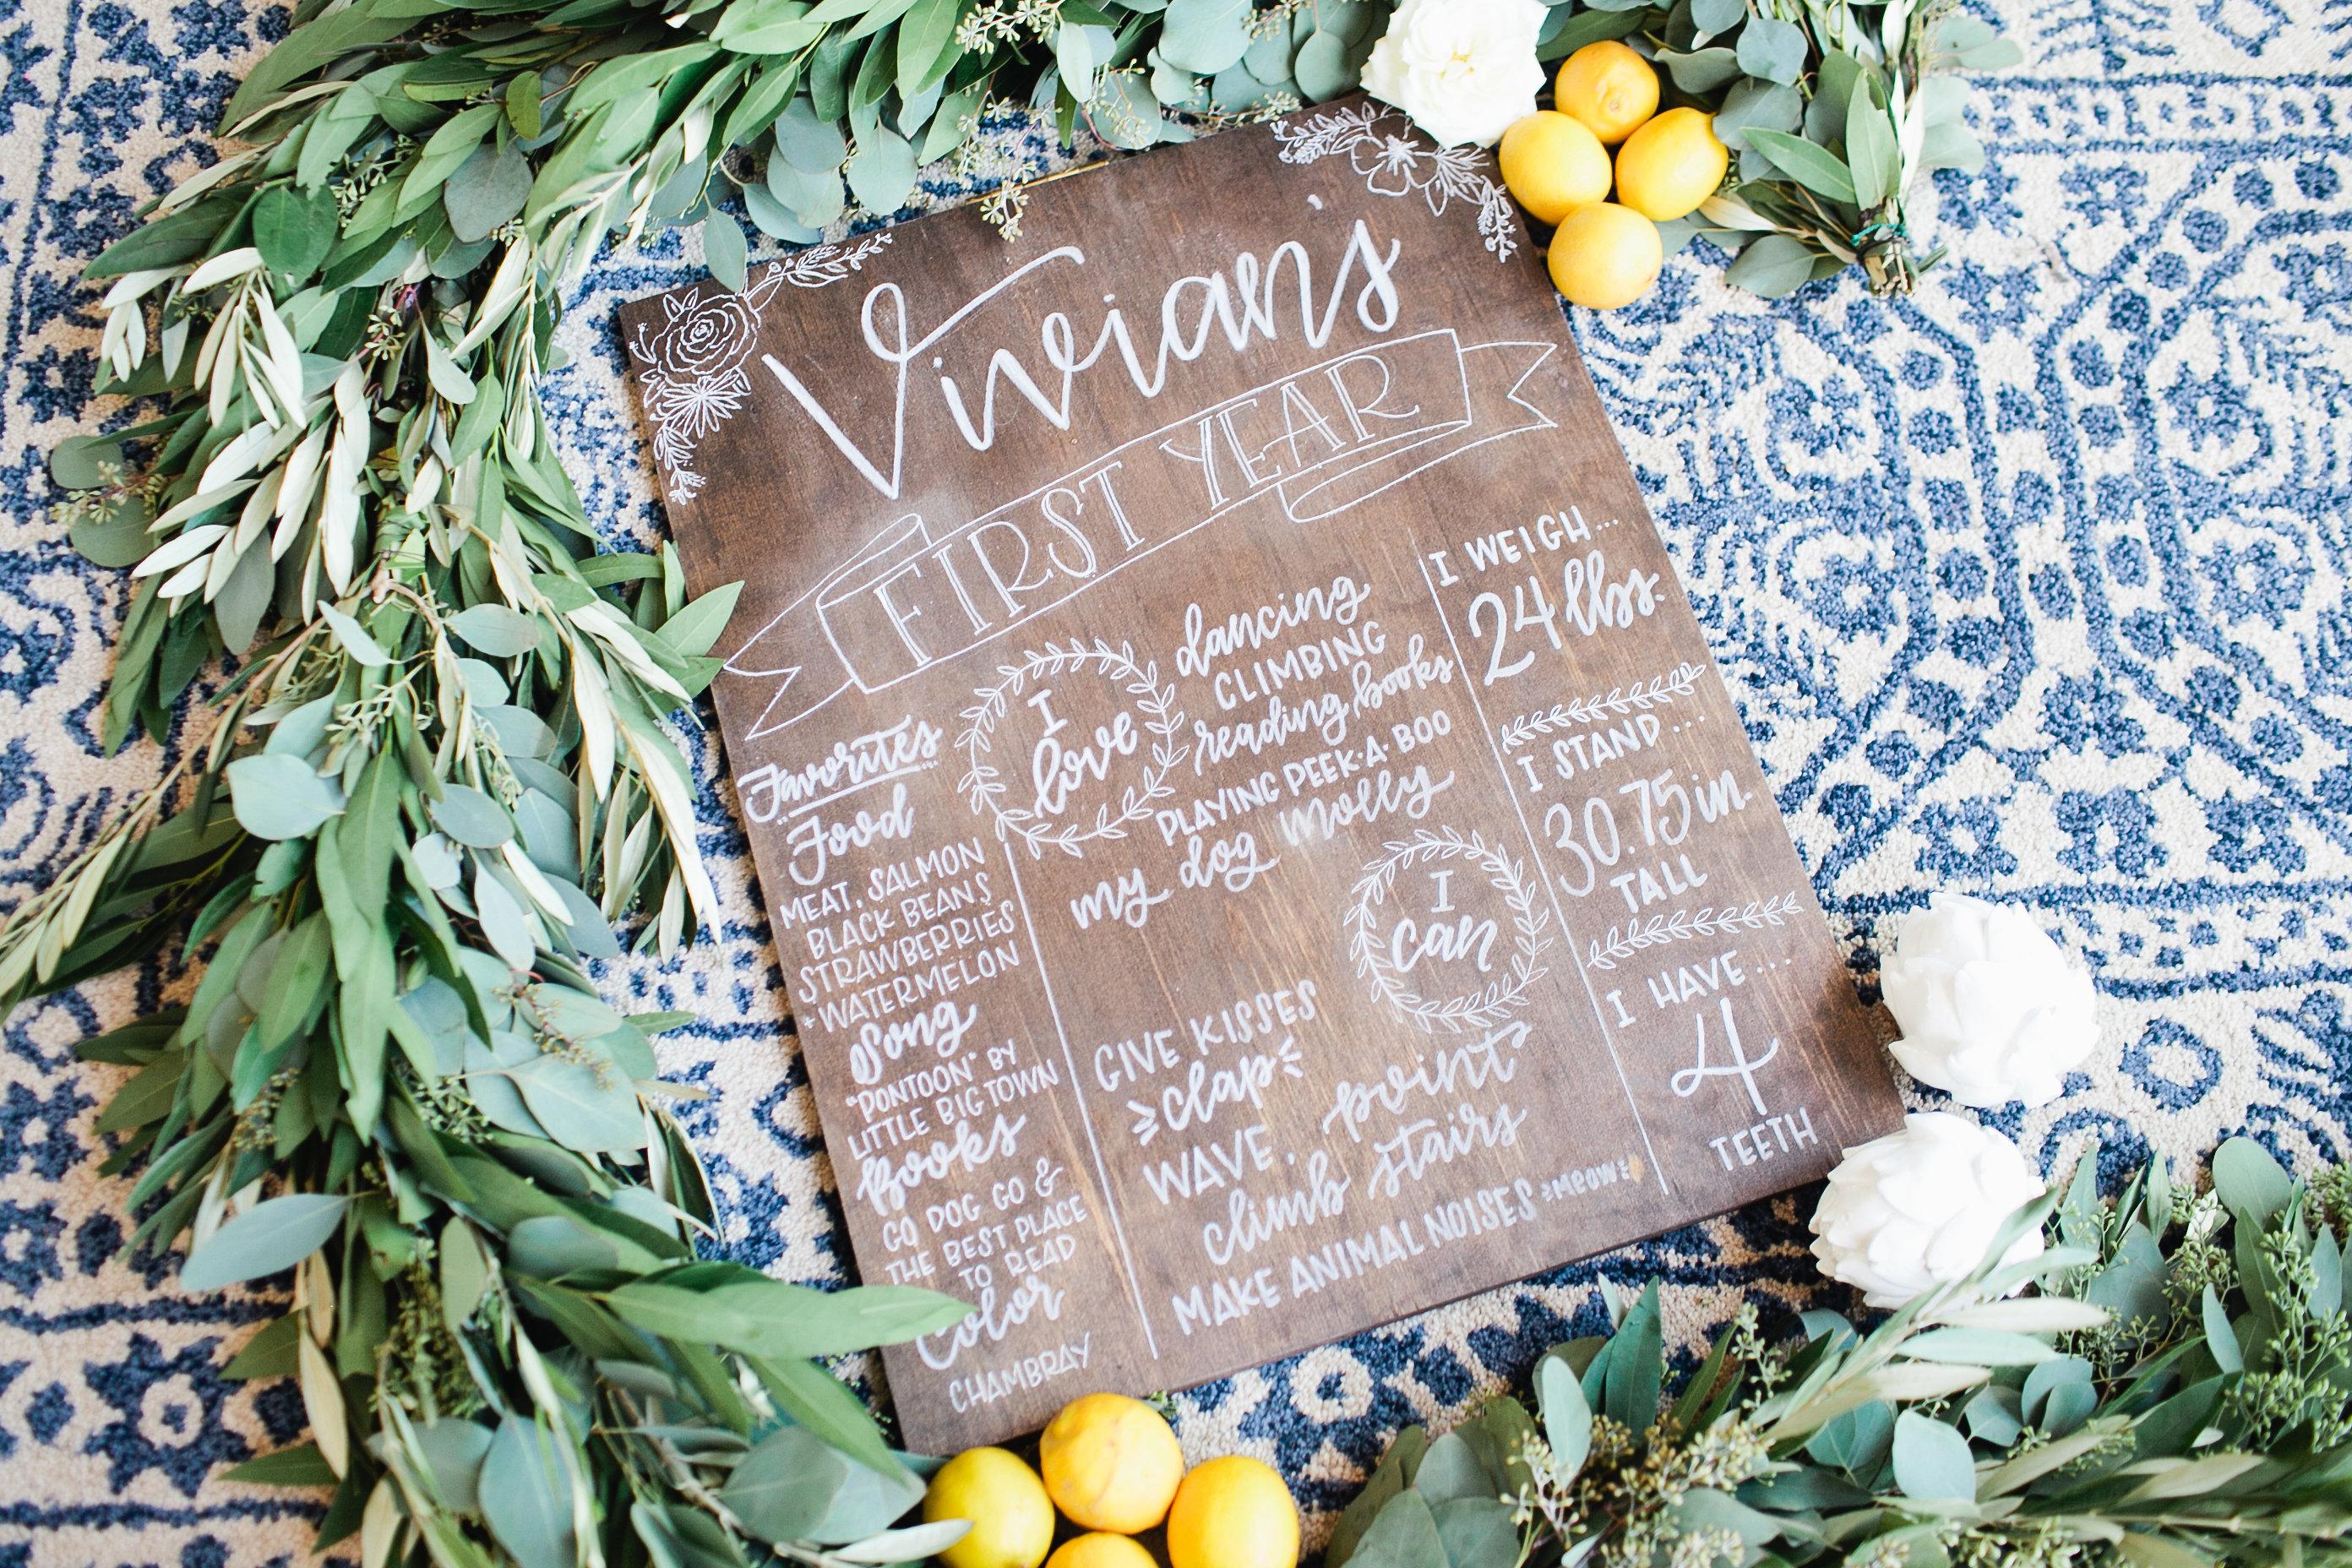 Vivian's
FIRST YEAR
Favorites
Food
MEAT, SALMON
BLACK BEANS
STRAWBERRIES
+ WATERMELON
Song
"PONTOON" BY
LITTLE BIG TOWN
Books
GO DOG GO &
THE BEST PLACE
TO READ
Color
CHAMBRAY
I
love
dancing
CLIMBING
reading books
PLAYING PEEK·A·BOO
my dog Molly
I
can
GIVE KISSES
clap
WAVE, point
climb stairs
MAKE ANIMAL NOISES MEOW
I WEIGH...
24 lbs.
I STAND...
30.75 in.
TALL
I HAVE...
4
TEETH